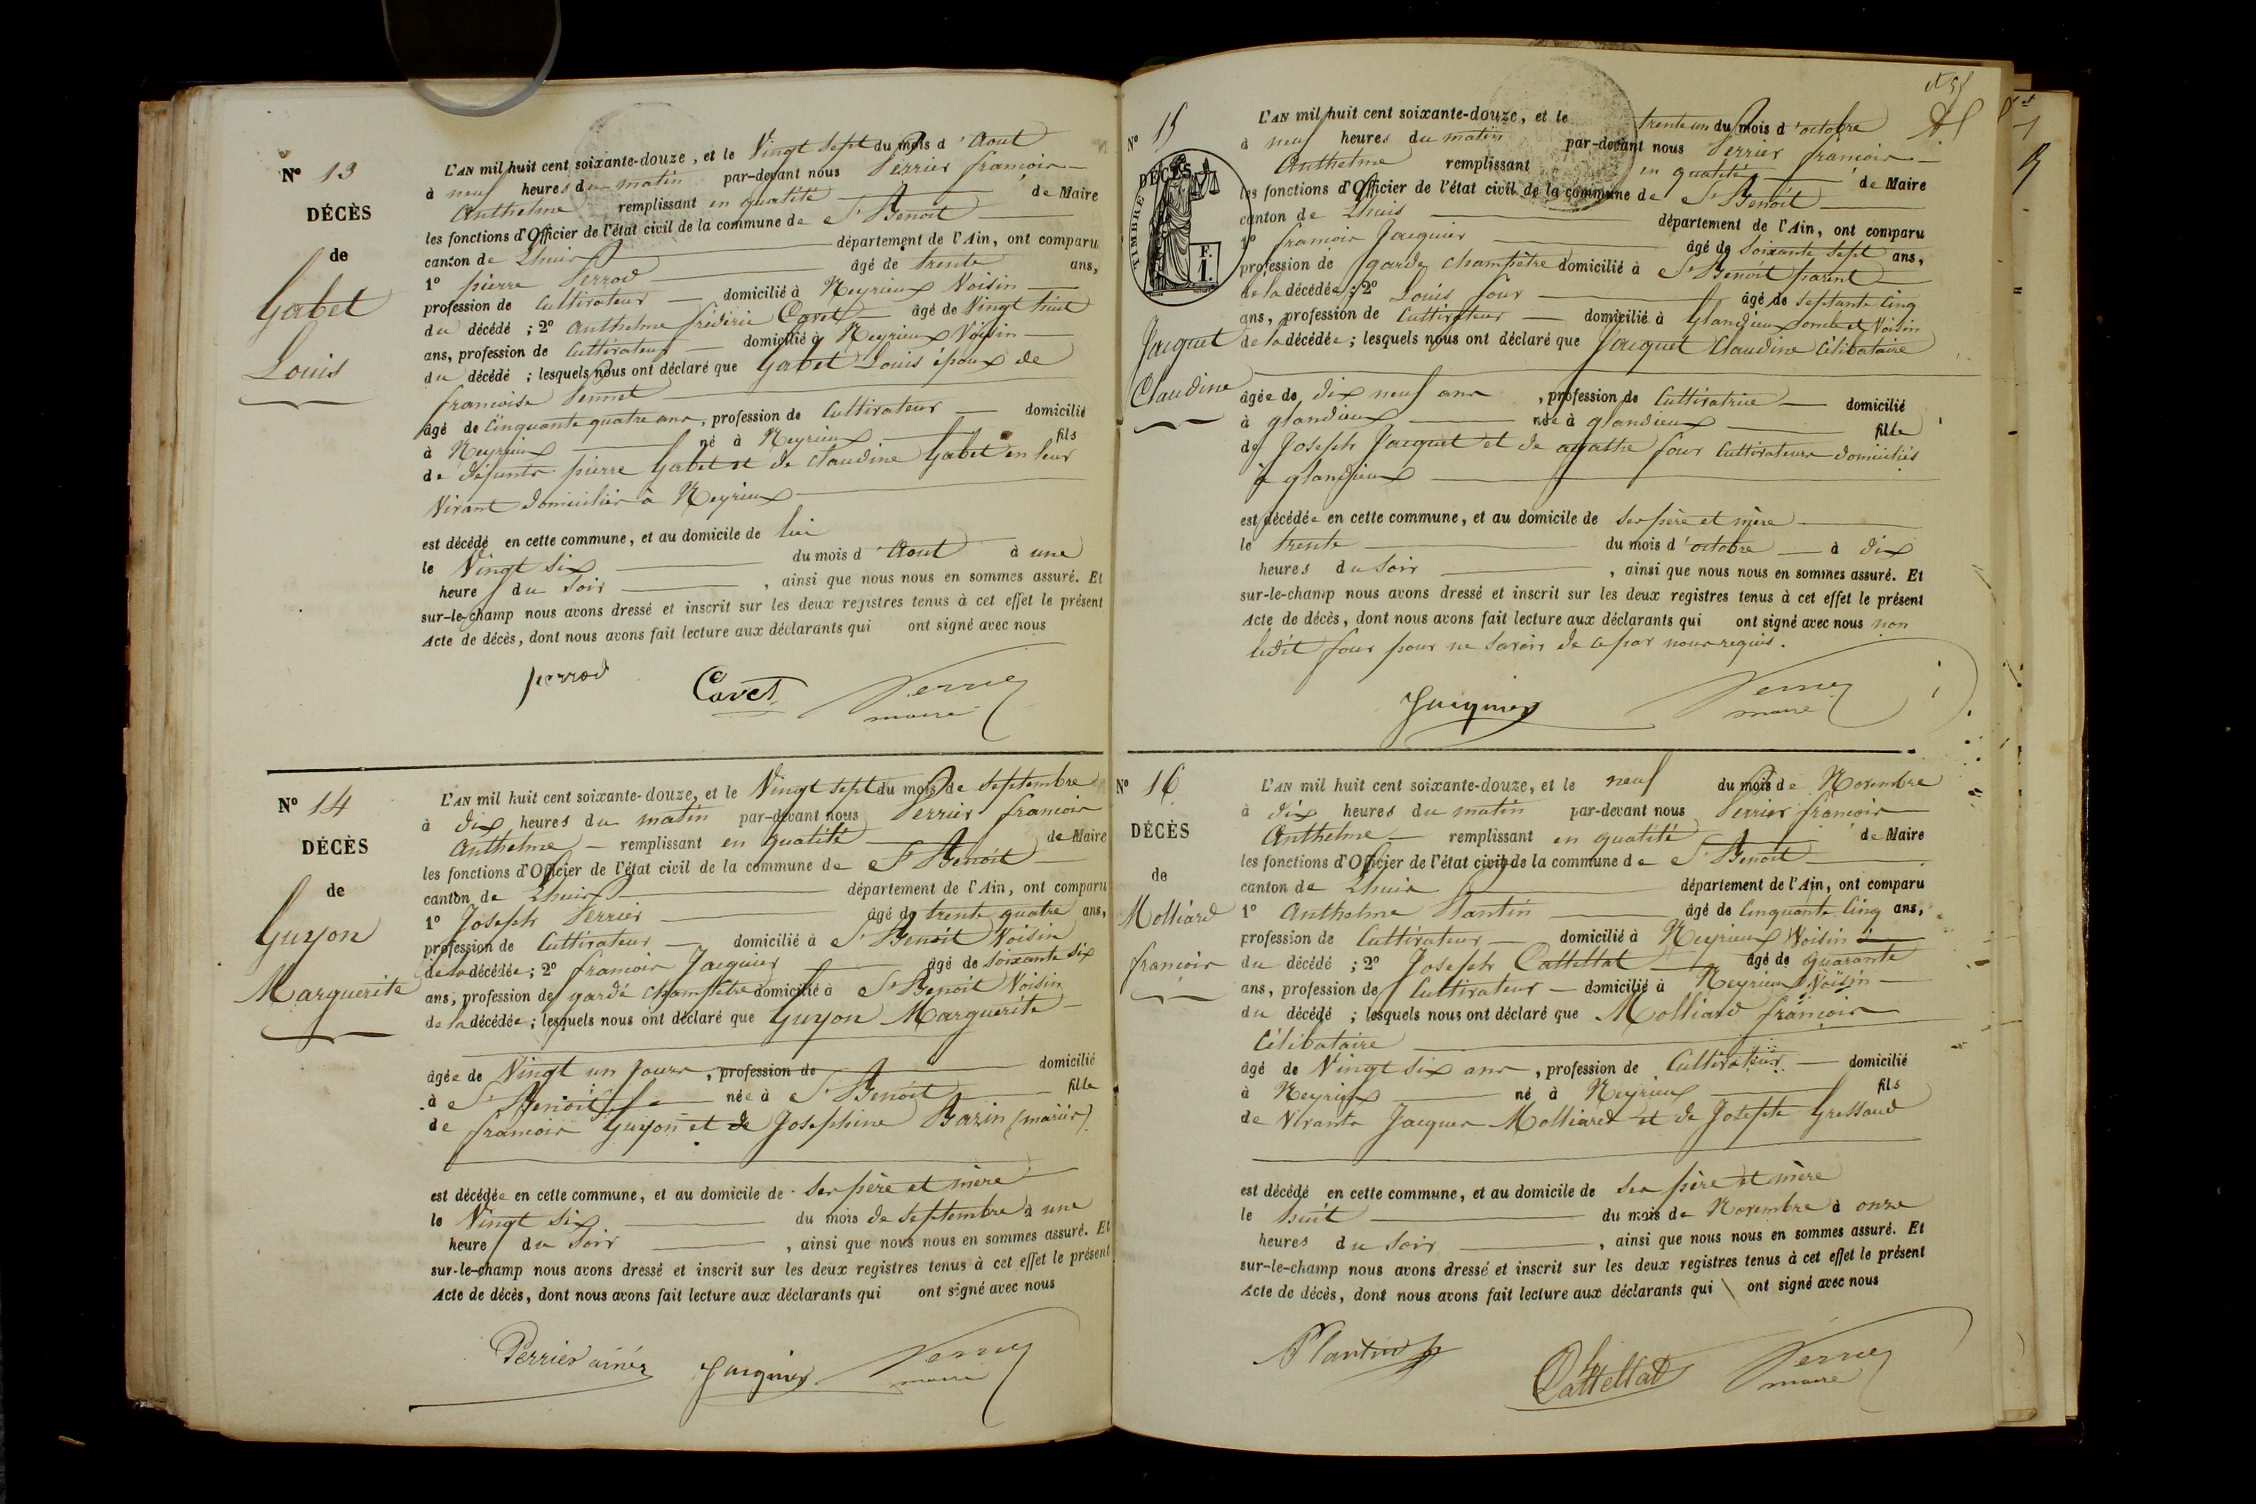 N° 13
DÉCÈS
de
Gabet
Louis
L'AN mil huit cent soixante-douze, et le Vingt Sept du mois d'Aout
à neuf heures du matin par-devant nous Perrier françois
Anthelme remplissant en qualité de Maire
les fonctions d'Officier de l'état civil de la commune de St Benoit
canton de Lhuis département de l'Ain, ont comparu
1° pierre Perrod âgé de trente ans,
profession de Cultivateur domicilié à Neyrieux Voisin
du décédé ; 2° Anthelme frédéric Cavet âgé de Vingt huit
ans, profession de Cultivateur domicilié à Neyrieux Voisin
du décédé ; lesquels nous ont déclaré que Gabet Louis époux de
francoise Pennet
âgé de Cinquante quatre ans, profession de Cultivateur domicilié
à Neyrieux né à Neyrieux fils
de défunts pierre Gabet et de Claudine Gabet en leur
Vivant domiciliés à Neyrieux
est décédé en cette commune, et au domicile de lui
le Vingt Six du mois d'Aout à une
heure du Soir , ainsi que nous nous en sommes assuré. Et
sur-le-champ nous avons dressé et inscrit sur les deux registres tenus à cet effet le présent
Acte de décès, dont nous avons fait lecture aux déclarants qui ont signé avec nous
perrod Cavet Perrier
maire
N° 14
DÉCÈS
de
Guyon
Marguerite
L'AN mil huit cent soixante-douze, et le Vingt Sept du mois de Septembre
à dix heures du matin par-devant nous Perrier francois
Anthelme remplissant en qualité de Maire
les fonctions d'Officier de l'état civil de la commune de St Benoit
canton de Lhuis département de l'Ain, ont comparu
1° Joseph Perrier âgé de trente quatre ans,
profession de Cultivateur domicilié à St Benoit Voisin
de la décédée ; 2° francois Jacquier âgé de Soixante six
ans, profession de garde Champêtre domicilié à St Benoit Voisin
de la décédée ; lesquels nous ont déclaré que Guyon Marguerite
âgée de Vingt un Jours , profession de domicilié
à St Benoit née à St Benoit fille
de francois Guyon et de Josephine Bazin (mariés)
est décédée en cette commune, et au domicile de ses père et mère
le Vingt six du mois de Septembre à une
heure du Soir , ainsi que nous nous en sommes assuré. Et
sur-le-champ nous avons dressé et inscrit sur les deux registres tenus à cet effet le présent
Acte de décès, dont nous avons fait lecture aux déclarants qui ont signé avec nous
Perrier ainé Jacquier Perrier
maire
N° 15
DÉCÈS
TIMBRE
F.
1.
Jacquet
Claudine
L'AN mil huit cent soixante-douze, et le trente un du mois d'octobre
à neuf heures du matin par-devant nous Perrier francois
Anthelme remplissant en qualité de Maire
les fonctions d'Officier de l'état civil de la commune de St Benoit
canton de Lhuis département de l'Ain, ont comparu
1° francois Jacquier âgé de Soixante Sept ans,
profession de garde champêtre domicilié à St Benoit parent
de la décédée ; 2° Louis four âgé de septante Cinq
ans, profession de Cultivateur domicilié à Glandieux Voisin
de la décédée ; lesquels nous ont déclaré que Jacquet Claudine Célibataire
âgée de dix neuf ans , profession de Cultivatrice domicilié
à glandieux née à glandieux fille
de Joseph Jacquet et de agathe four Cultivateurs domiciliés
à glandieux
est décédée en cette commune, et au domicile de ses père et mère
le trente du mois d'octobre à dix
heures du Soir , ainsi que nous nous en sommes assuré. Et
sur-le-champ nous avons dressé et inscrit sur les deux registres tenus à cet effet le présent
Acte de décès, dont nous avons fait lecture aux déclarants qui ont signé avec nous non
ledit four pour ne savoir de ce par nous requis.
Jacquier Perrier
maire
N° 16
DÉCÈS
de
Molliard
francois
L'AN mil huit cent soixante-douze, et le neuf du mois de Novembre
à dix heures du matin par-devant nous Perrier francois
Anthelme remplissant en qualité de Maire
les fonctions d'Officier de l'état civil de la commune de St Benoit
canton de Lhuis département de l'Ain, ont comparu
1° Anthelme Plantin âgé de Cinquante Cinq ans,
profession de Cultivateur domicilié à Neyrieux Voisin
du décédé ; 2° Joseph Cattellat âgé de quarante
ans, profession de Cultivateur domicilié à Neyrieux Voisin
du décédé ; lesquels nous ont déclaré que Molliard francois
Célibataire
âgé de Vingt six ans , profession de Cultivateur domicilié
à Neyrieux né à Neyrieux fils
de Vivants Jacques Molliard et de Josephte Gressaud
est décédé en cette commune, et au domicile de ses père et mère
le huit du mois de Novembre à onze
heures du Soir , ainsi que nous nous en sommes assuré. Et
sur-le-champ nous avons dressé et inscrit sur les deux registres tenus à cet effet le présent
Acte de décès, dont nous avons fait lecture aux déclarants qui ont signé avec nous
Plantin Cattellat Perrier
maire